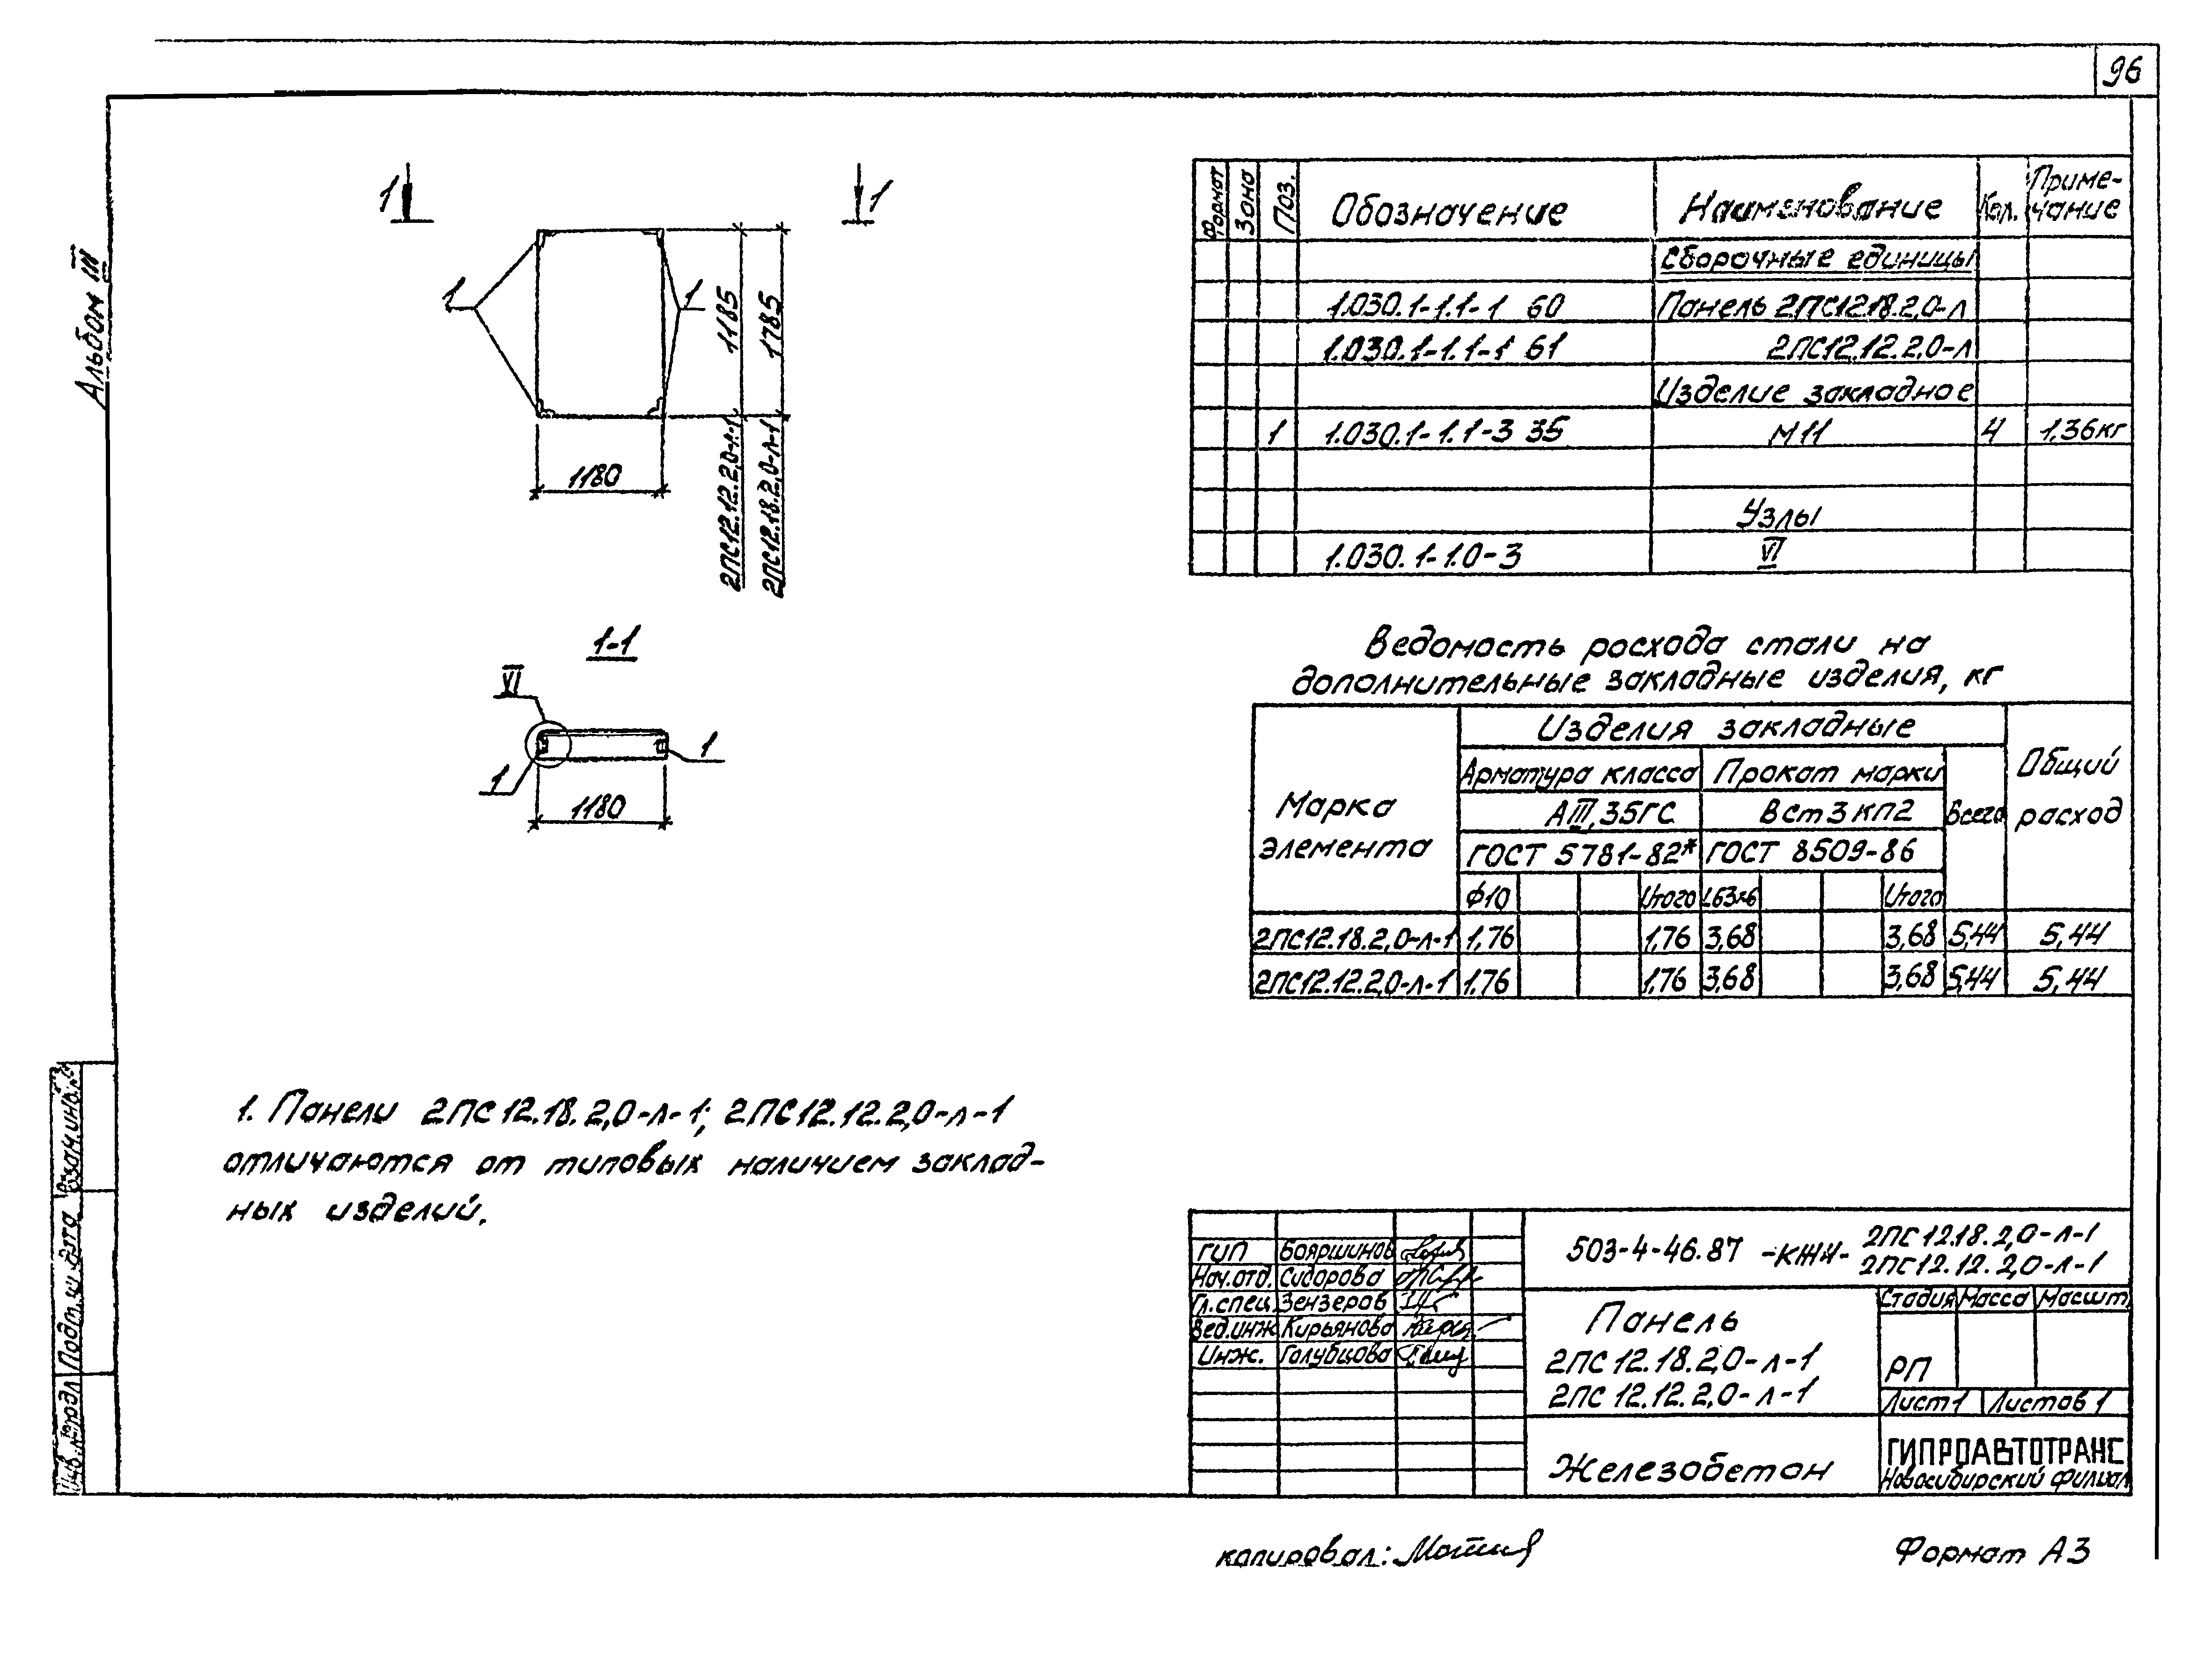 96
Альбом III
1 1
1 1
1185
1785
1180
2ПС12.12.2,0-л-1
2ПС12.18.2,0-л-1
1-1
VI
1
1
1180
1. Панели 2ПС12.18.2,0-л-1; 2ПС12.12.2,0-л-1
отличаются от типовых наличием заклад-
ных изделий.
Формат Зона Поз. Обозначение Наименование Кол. Приме-
чание
Сборочные единицы
1.030.1-1.1-1 60 Панель 2ПС12.18.2,0-л
1.030.1-1.1-1 61 2ПС12.12.2,0-л
Изделие закладное
1 1.030.1-1.1-3 35 М11 4 1,36кг
Узлы
1.030.1-1.0-3 VI
Ведомость расхода стали на
дополнительные закладные изделия, кг
Марка
элемента
Изделия закладные
Общий
расход
Арматура класса Прокат марки
АIII, 35ГС Вст3кп2 Всего
ГОСТ 5781-82* ГОСТ 8509-86
Ф10 Итого L63х6 Итого
2ПС12.18.2,0-л-1 1,76 1,76 3,68 3,68 5,44 5,44
2ПС12.12.2,0-л-1 1,76 1,76 3,68 3,68 5,44 5,44
503-4-46.87 -КЖИ- 2ПС12.18.2,0-л-1
2ПС12.12.2,0-л-1
ГИП Бояршинов
Нач.отд. Сидорова
Гл.спец. Зензеров
Вед.инж. Кирьянова
Инж. Голубцова
Панель
2ПС12.18.2,0-л-1
2ПС12.12.2,0-л-1
Стадия Масса Масшт.
РП
Лист 1 Листов 1
Железобетон
ГИПРОАВТОТРАНС
Новосибирский филиал
Взам.инв.№
Подп. и дата
Инв.№подл
копировал:
Формат А3